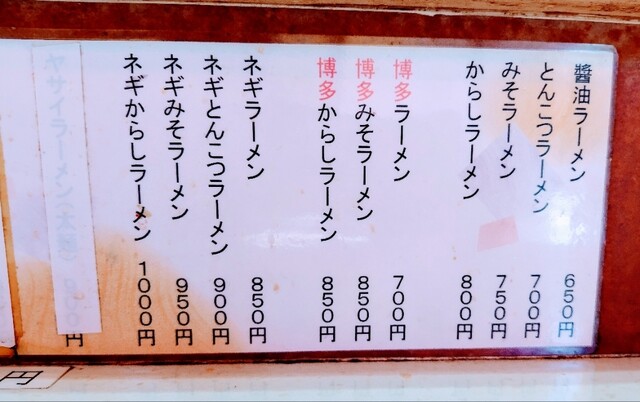 醬油ラーメン 650円
とんこつラーメン 700円
みそラーメン 750円
からしラーメン 800円
博多ラーメン 700円
博多みそラーメン 850円
博多からしラーメン 850円
ネギラーメン 850円
ネギとんこつラーメン 900円
ネギみそラーメン 950円
ネギからしラーメン 1000円
ヤサイラーメン(大盛) 900円
円